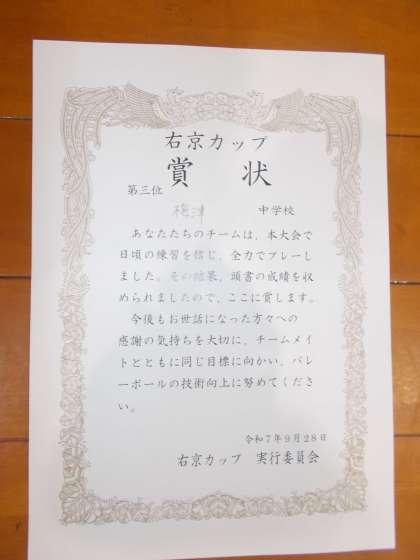 右京カップ
賞状
第三位
梅津 中学校
あなたたちのチームは、本大会で
日頃の練習を信じ、全力でプレーし
ました。その結果、頭書の成績を収
められましたので、ここに賞します。
今後もお世話になった方々への
感謝の気持ちを大切に、チームメイ
トとともに同じ目標に向かい、バレ
ーボールの技術向上に努めてくださ
い。
令和7年9月28日
右京カップ 実行委員会